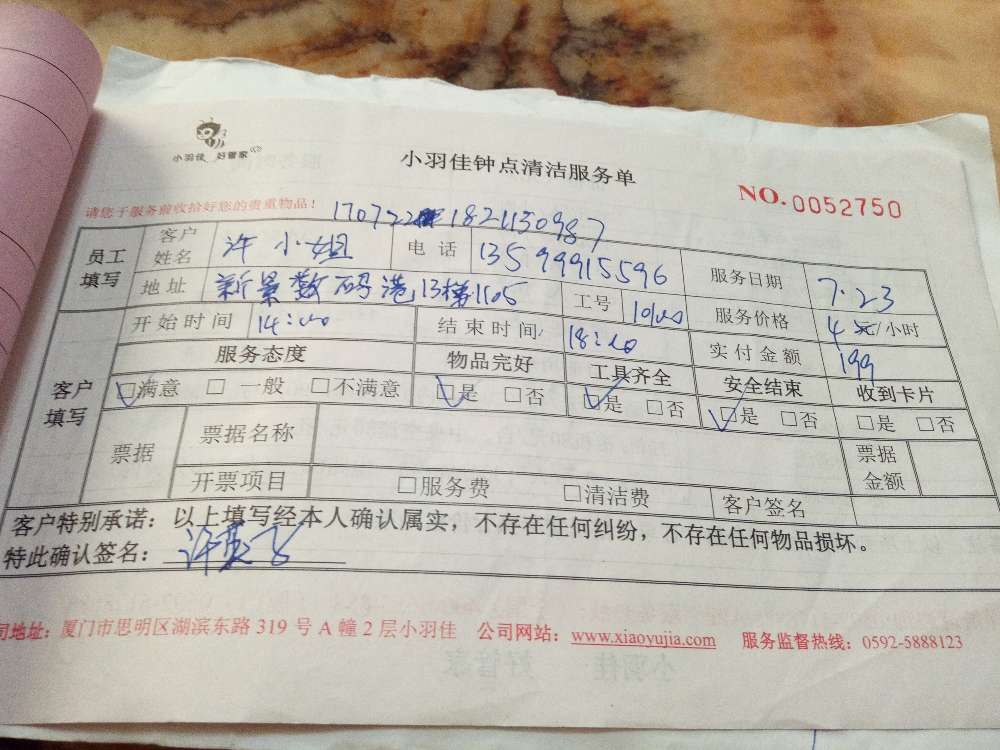 小羽佳 好管家
小羽佳钟点清洁服务单
NO.0052750
请您于服务前收拾好您的贵重物品！
员工填写 客户姓名 许小姐 电话 13599915596 服务日期 7.23
地址 新景数码港13梯1105 工号 服务价格 4 元/小时
客户填写 开始时间 14:00 结束时间 18:00 实付金额 199
服务态度 物品完好 工具齐全 安全结束 收到卡片
□满意 □一般 □不满意 □是 □否 □是 □否 □是 □否 □是 □否
票据 票据名称 票据金额
开票项目 □服务费 □清洁费 客户签名
客户特别承诺：以上填写经本人确认属实，不存在任何纠纷，不存在任何物品损坏。
特此确认签名：
司地址：厦门市思明区湖滨东路 319 号 A 幢 2 层小羽佳 公司网站：www.xiaoyujia.com 服务监督热线：0592-5888123